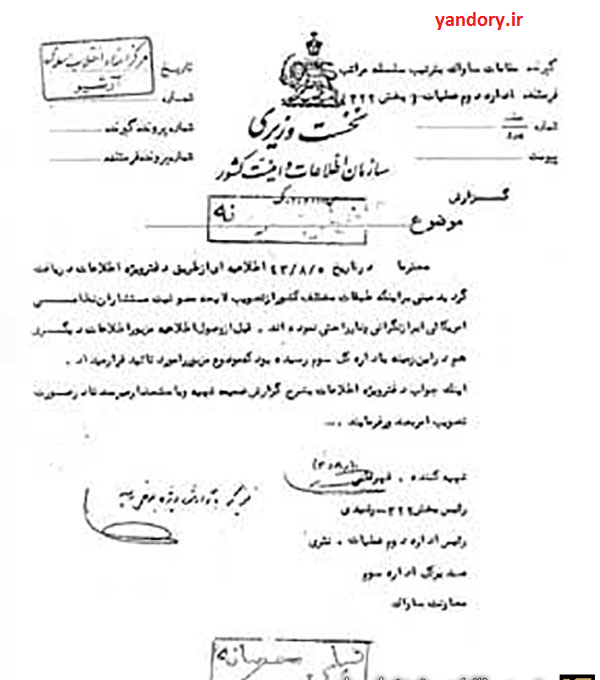 yandory.ir
مرکز اسناد انقلاب اسلامی
آرشیو
تاریخ
شماره
شماره پرونده گیرنده
شماره پرونده فرستنده
نخست وزیری
سازمان اطلاعات و امنیت کشور
گیرنده مقامات ساواک بترتیب سلسله مراتب
فرستنده اداره دوم عملیات (بخش ۳۲۲)
شماره
پیوست
گزارش
موضوع
محترما در تاریخ ۴۳/۸/۵ اطلاعیه ای از طریق دفتر ویژه اطلاعات دریافت
گردید مبنی بر اینکه طبقات مختلف کشور از تصویب لایحه مصونیت مستشاران نظامی
امریکائی ابراز نگرانی و ناراحتی نموده اند . قبل از وصول اطلاعیه مزبور اطلاعات دیگری
هم در این زمینه باداره کل سوم رسیده بود که موضوع مزبور را مورد تائید قرار میداد .
اینک جواب دفتر ویژه اطلاعات بشرح گزارش ضمیمه تهیه و باستحضار میرسد تا در صورت
تصویب امر بصدور فرمایند ...
تهیه کننده .
رئیس بخش ۳۲۲ - رشیدی
رئیس اداره دوم عملیات .
مدیرکل اداره سوم
معاونت ساواک
خیلی محرمانه